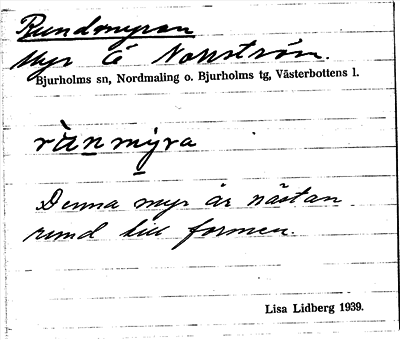 Rundmyran
Myr Ö Nonström.
Bjurholms sn, Nordmaling o. Bjurholms tg, Västerbottens l.
ràn mýra
Denna myr är nästan
rund till formen.
Lisa Lidberg 1939.